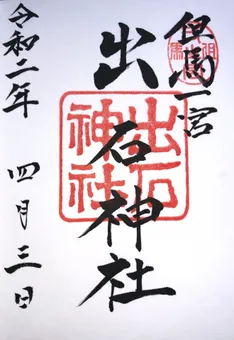 但馬一宮
出石神社
令和二年 四月三日
出石
神社